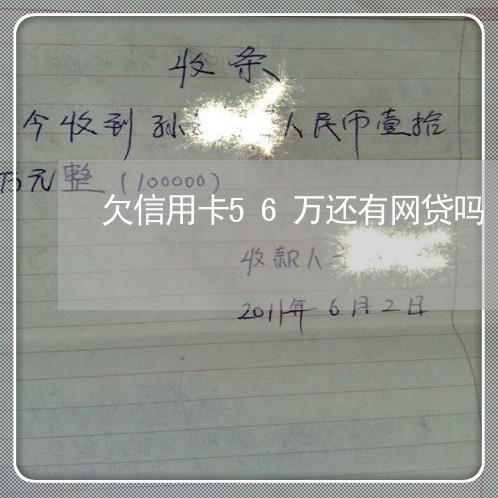 收条
今收到孙人民币壹拾
万元整(100000)
欠信用卡56万还有网贷吗
收款人
2011年6月2日